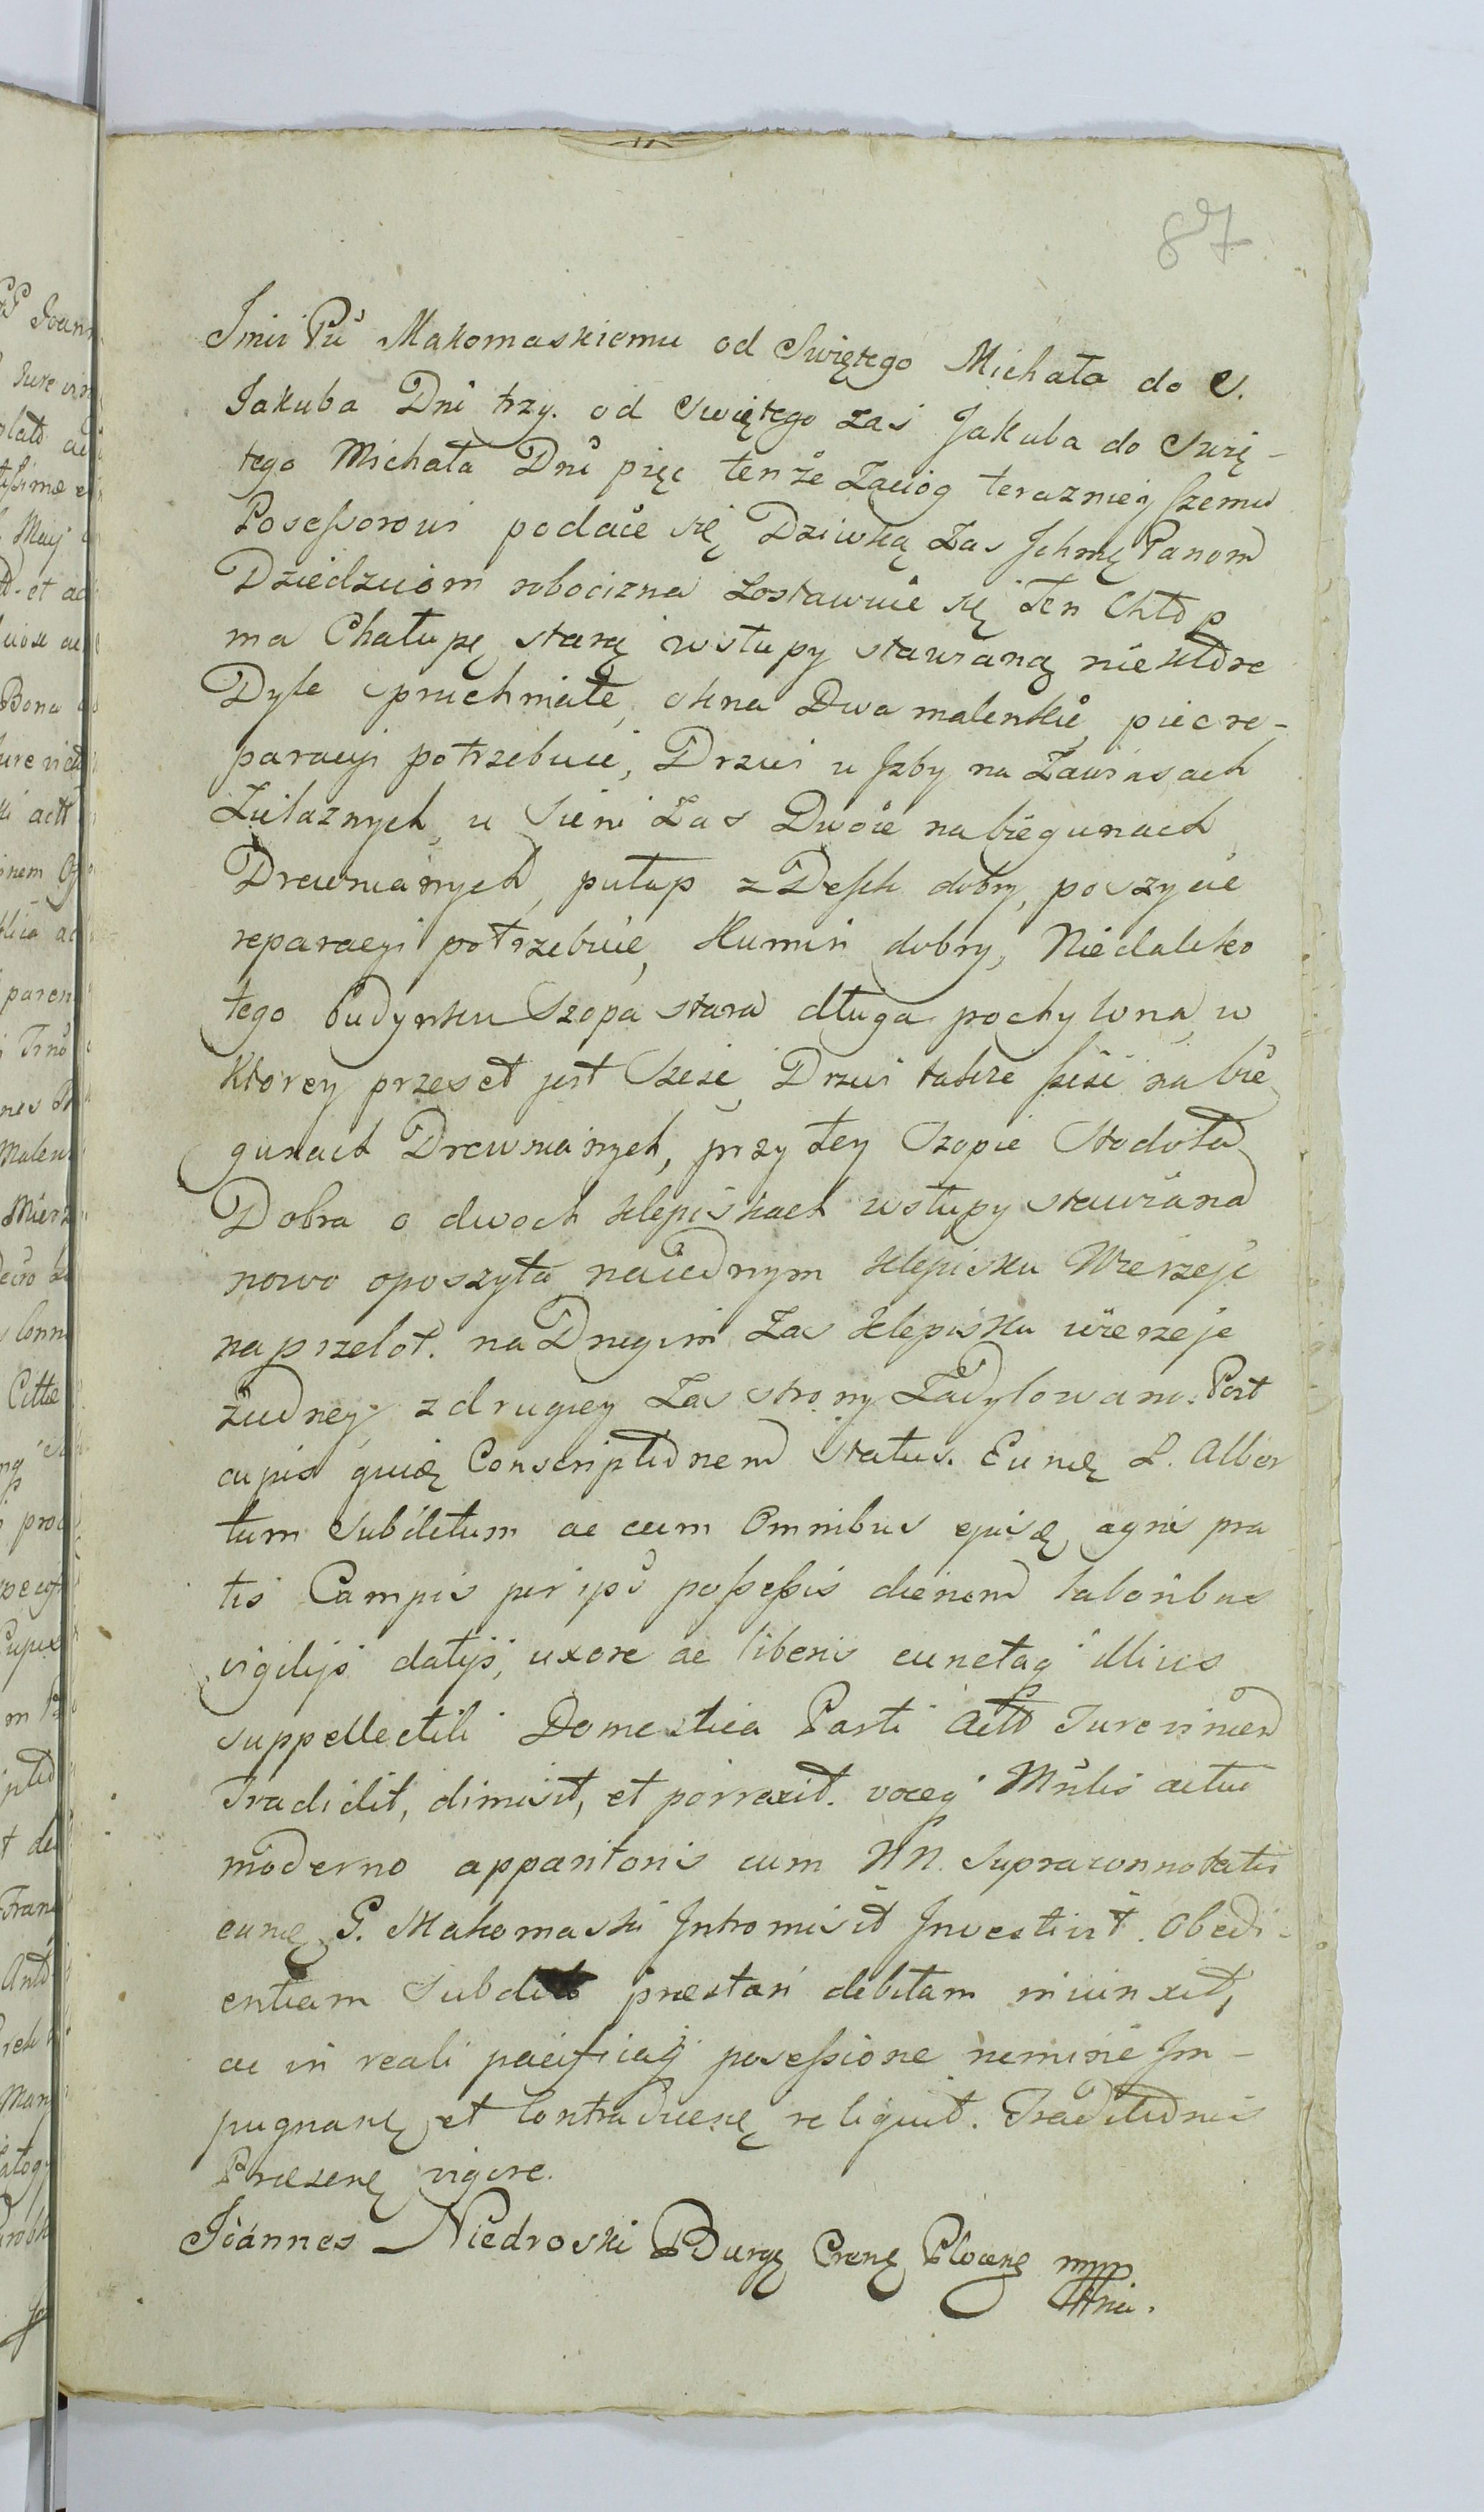 87
Jmci Pu Makomaskiemu od Swiętego Michała do S.
Jakuba Dni trzy. od Swiętego zas Jakuba do Swię-
tego Michała Dni pięc tenże Zaciog teraznieyszemu
Posessorowi podaie się Dziwką zas Jchmę Panom
Dziedzicom robocizna zostawuie się Ten Chłop
ma Chałupę starą wstupy stawianą niektore
Dyle spruchniałe, okna Dwa malenkie, piec re-
paracyi potrzebuie, Drzwi u Jzby na Zawiasach
Zielaznych, u Sieni zas Dwoie na biegunach
Drewnianych, pułap z Desek dobry, poszycie
reparacyi potrzebuie, Kumin dobry, Niedaleko
tego budynku Szopa stara długa pochylona, w
Ktorey przeset jest Szesc, Drzwi takze sześć na bie
gunach Drewnianych, przy tey Szopie Stodoła
Dobra o dwoch klepiskach wstupy stawiana
nowo oposzyta, na iednym klepisku Wierzeje
na przelot. na Drugim zas klepisku wierzeje
ziedney, z drugiey zas strony Zadylowano. Post
cujus quię Conscriptionem status. Eunde L. Alber
tum Subditum ac cum Omnibus ejusę agris pra
tis Campis per ips possessis dierum laboribus
vigilijs datijs, uxore ac liberis cunctaq illius
suppellectili Domestica Parti Actt Jurevincen
Tradidit, dimisit, et porrexit. voceq Mnlis actui
moderno apparitoris cum NN. supraconnotatis
eunę G. Makomaski Jntromisit Jnvestivit. Obedi-
entiam Subditt præstari debitam iniunxit,
ac in reali pacificaq possessione nemine Jm-
pugnanę et Contradicenę reliquit. Traditionis
Præsenę vigore.
Joannes Niedroski Burgę Crenę Plocenę mpp